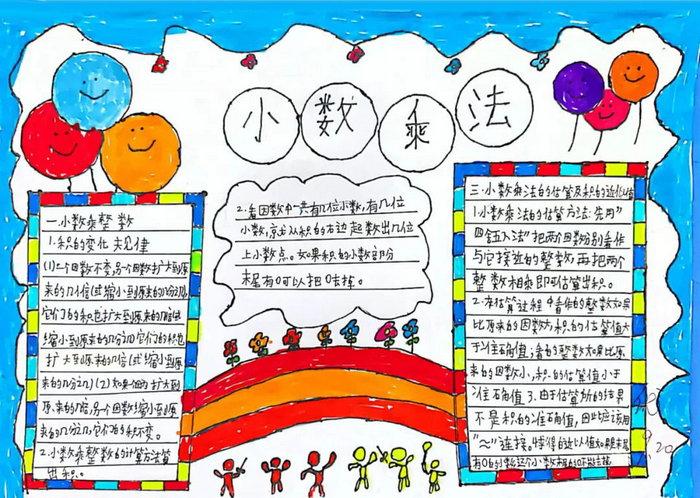 小数乘法
一.小数乘整数
1.积的变化规律
(1)一个因数不变,另一个因数扩大到原
来的几倍(或缩小到原来的几分之几)
它们的积也扩大到原来的几倍或
缩小到原来的几分之几它们的积也
扩大到原来的几倍(或缩小到原
来的几分之几)(2)如果一个因数扩大到
原来的几倍,另一个因数缩小到原
来的几分之几,它们的积不变。
2.小数乘整数的计算方法算
出积。
2.看因数中一共有几位小数,有几位
小数,就从积的右边起数出几位
上小数点。如果积的小数部分
末尾有0可以把0去掉。
三.小数乘法的估算及积的近似值
1.小数乘法的估算方法:先用"
四舍五入法"把两个因数分别看作
与它接近的整数,再把两个
整数相乘即可估算出积。
2.在估算过程中看作的整数如果
比原来的因数大,积的估算值大
于准确值;看的整数如果比原
来的因数小,积的估算值小于
准确值3.由于估算所的结果
不是积的准确值,因此应该用
"≈"连接。
9.20